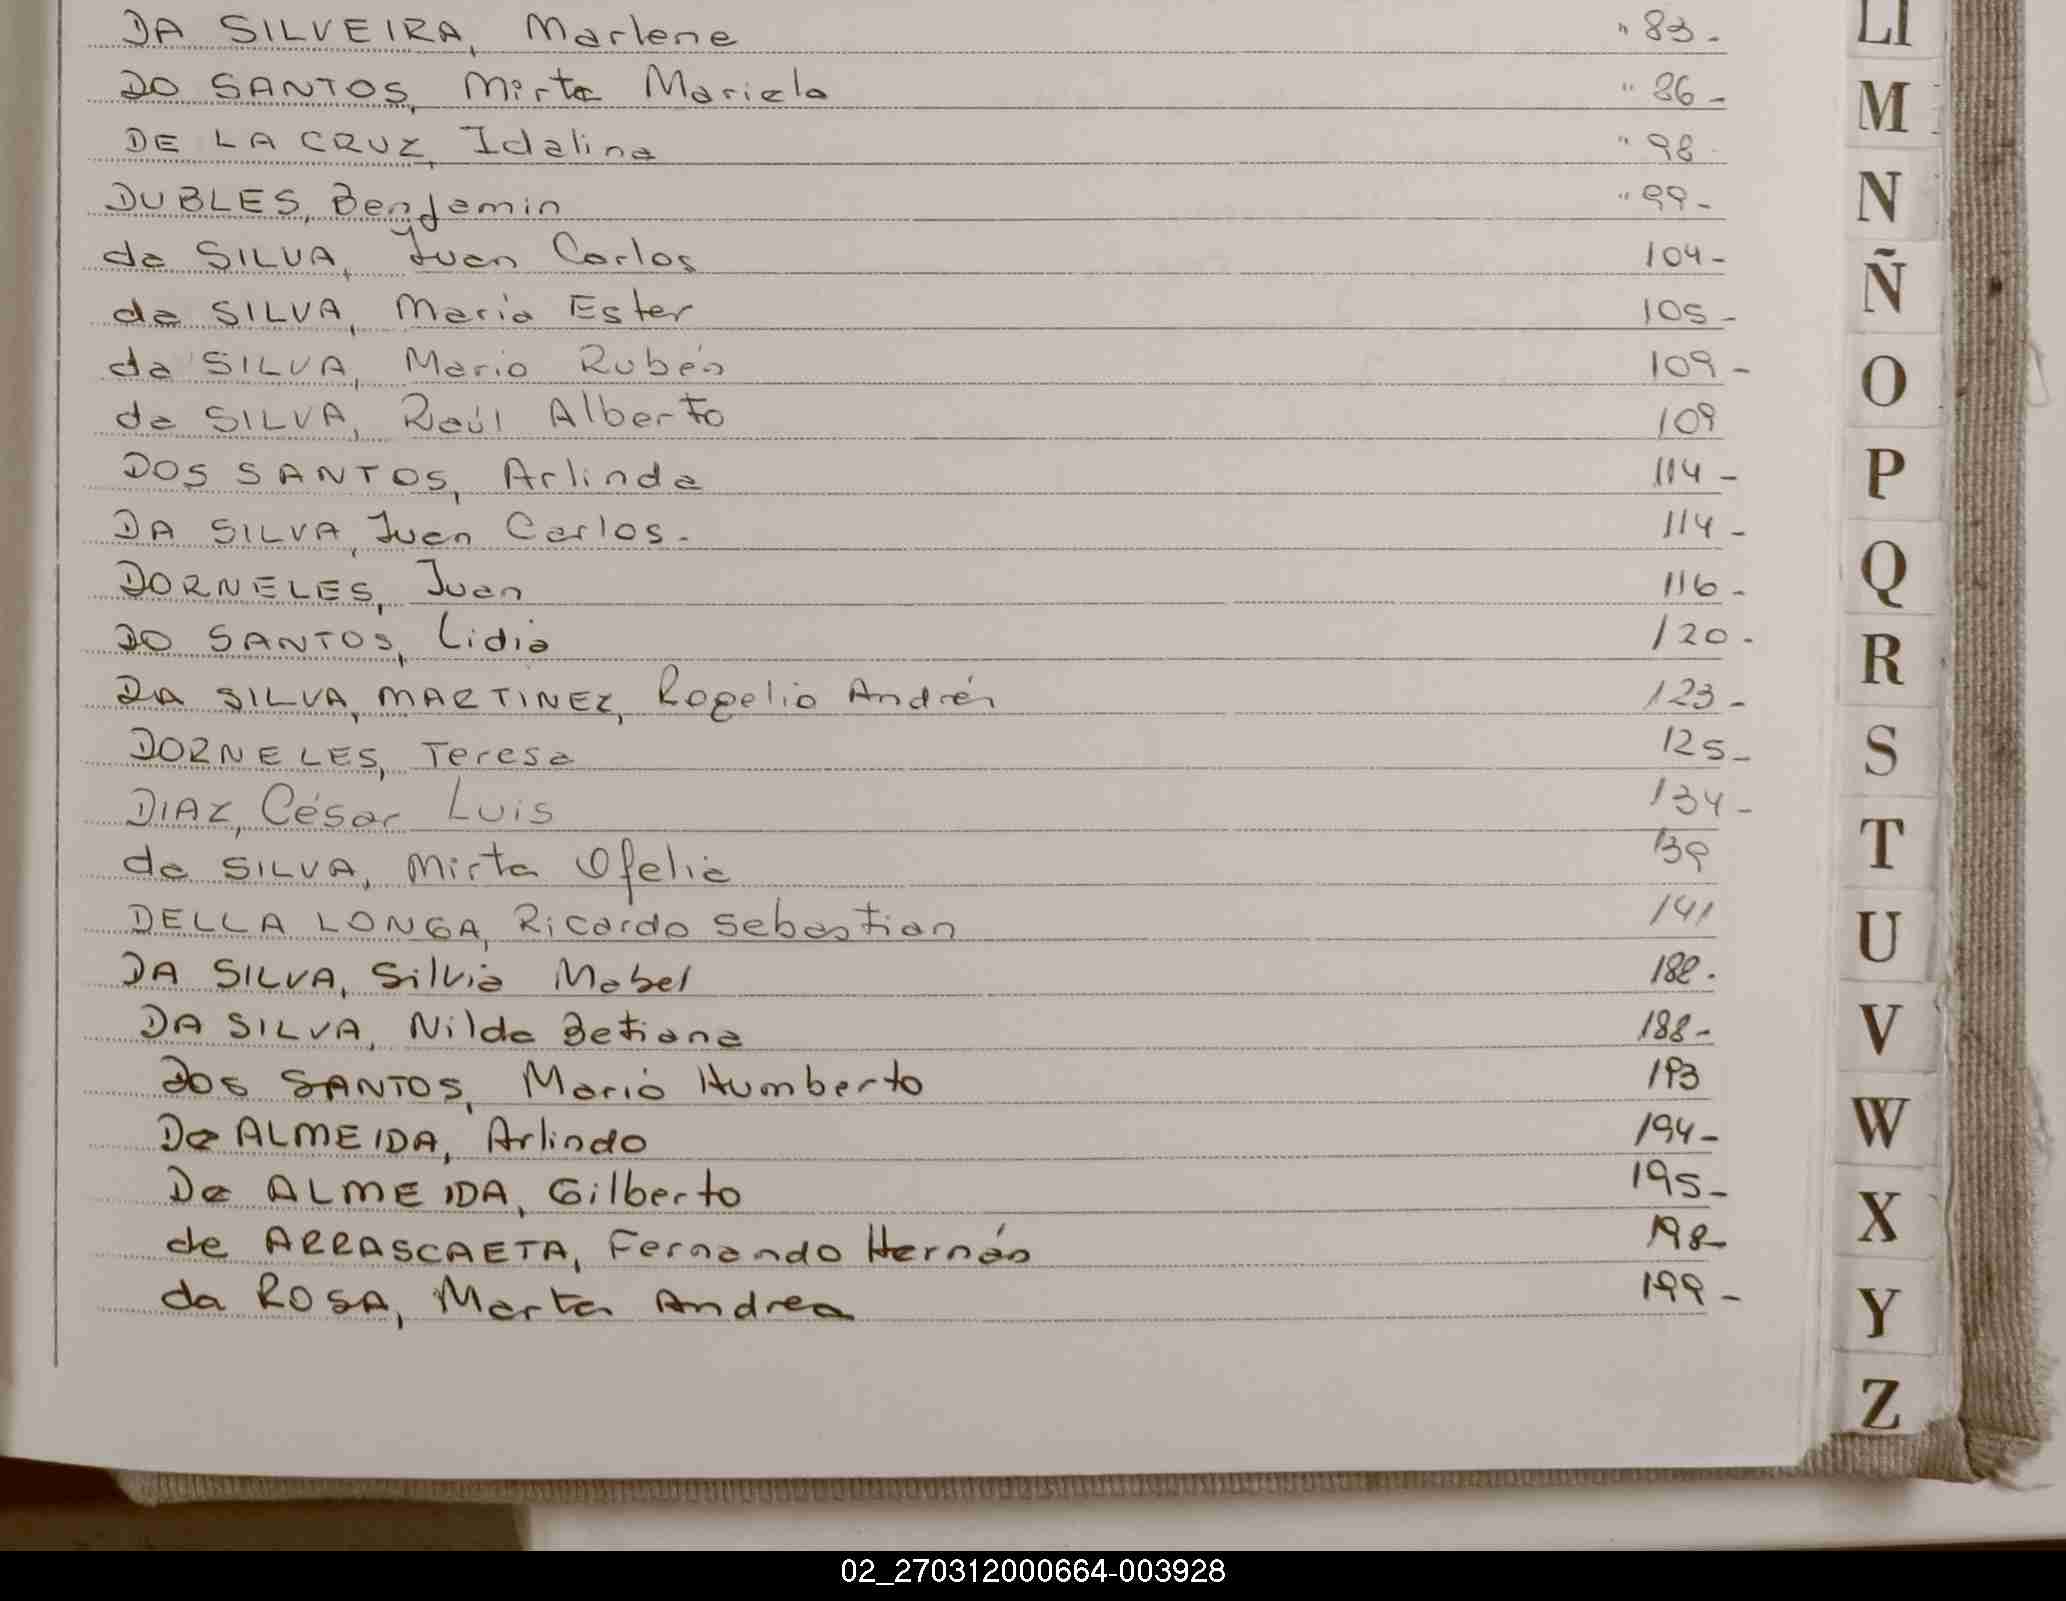 DA SILVEIRA, Marlene " 83-
DO SANTOS, Mirta Mariela " 86-
DE LA CRUZ, Idalina " 98-
DUBLES, Benjamin " 99-
da SILVA, Juan Carlos 104-
da SILVA, Maria Ester 105-
da SILVA, Mario Rubén 109-
da SILVA, Raúl Alberto 109
DOS SANTOS, Arlinda 114-
DA SILVA, Juan Carlos- 114-
DORNELES, Juan 116-
DO SANTOS, Lidia 120-
DA SILVA, MARTINEZ, Rogelio Andrés 123-
DORNELES, Teresa 125-
DIAZ, César Luis 134-
da SILVA, Mirta Ofelia 139
DELLA LONGA, Ricardo Sebastian 141
DA SILVA, Silvia Mabel 182.
DA SILVA, Nilda Betiana 188-
DOS SANTOS, Mario Humberto 193
De ALMEIDA, Arlindo 194-
De ALMEIDA, Gilberto 195-
de ARRASCAETA, Fernando Hernán 198-
da ROSA, Marta Andrea 199-
LI
M
N
Ñ
O
P
Q
R
S
T
U
V
W
X
Y
Z
02_270312000664-003928